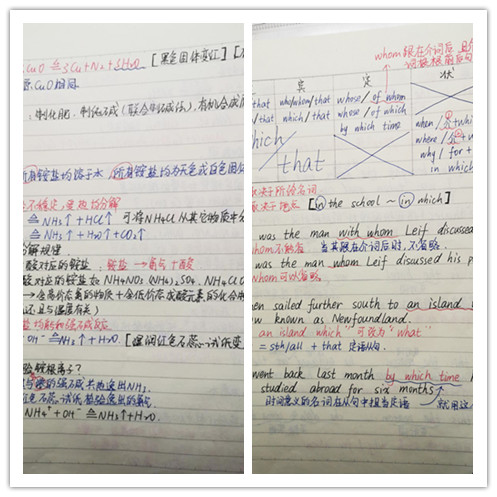 CuO ≙ 3Cu+N₂+3H₂O [黑色固体变红]
CuO相同
制化肥、制纯碱(联合制碱法)、有机合成
所有铵盐均溶于水,所有铵盐均为无色或白色固体
不稳定,受热均分解
≙ NH₃↑+HCl↑ 可将NH₄Cl从其它物质中分
≙ NH₃↑+H₂O+CO₂↑
分解规律
酸对应的铵盐:铵盐→氨气+酸
酸对应的铵盐如 NH₄NO₃ (NH₄)₂SO₄, NH₄Cl
还且与温度有关)
盐均能和强碱反应
OH⁻ ≙ NH₃↑+H₂O. [湿润红色石蕊试纸变
验铵根离子?
与浓的强碱共热逸出NH₃
红色石蕊试纸检验逸出的氨气
NH₄⁺+OH⁻ ≙ NH₃↑+H₂O.
whom跟在介词后,且
宾 定 状
that who/whom/that whose/of whom
that which/that whose/of which when/介+whi
by which time where/介+
which why/for+
that in which
于所给名词
取决于地点 [in the school ~ in which]
was the man with whom Leif discussed
whom不能省 当其跟在介词后时,不省略.
was the man whom Leif disussed his p
whom可以省略.
en sailed further south to an island w
w known as Newfoundland.
an island which" 可改为 "what"
= sth/all + that 定语从句.
went back last month by which time
studied abroad for six months
时间意义的名词在从句中担当定语 就用这